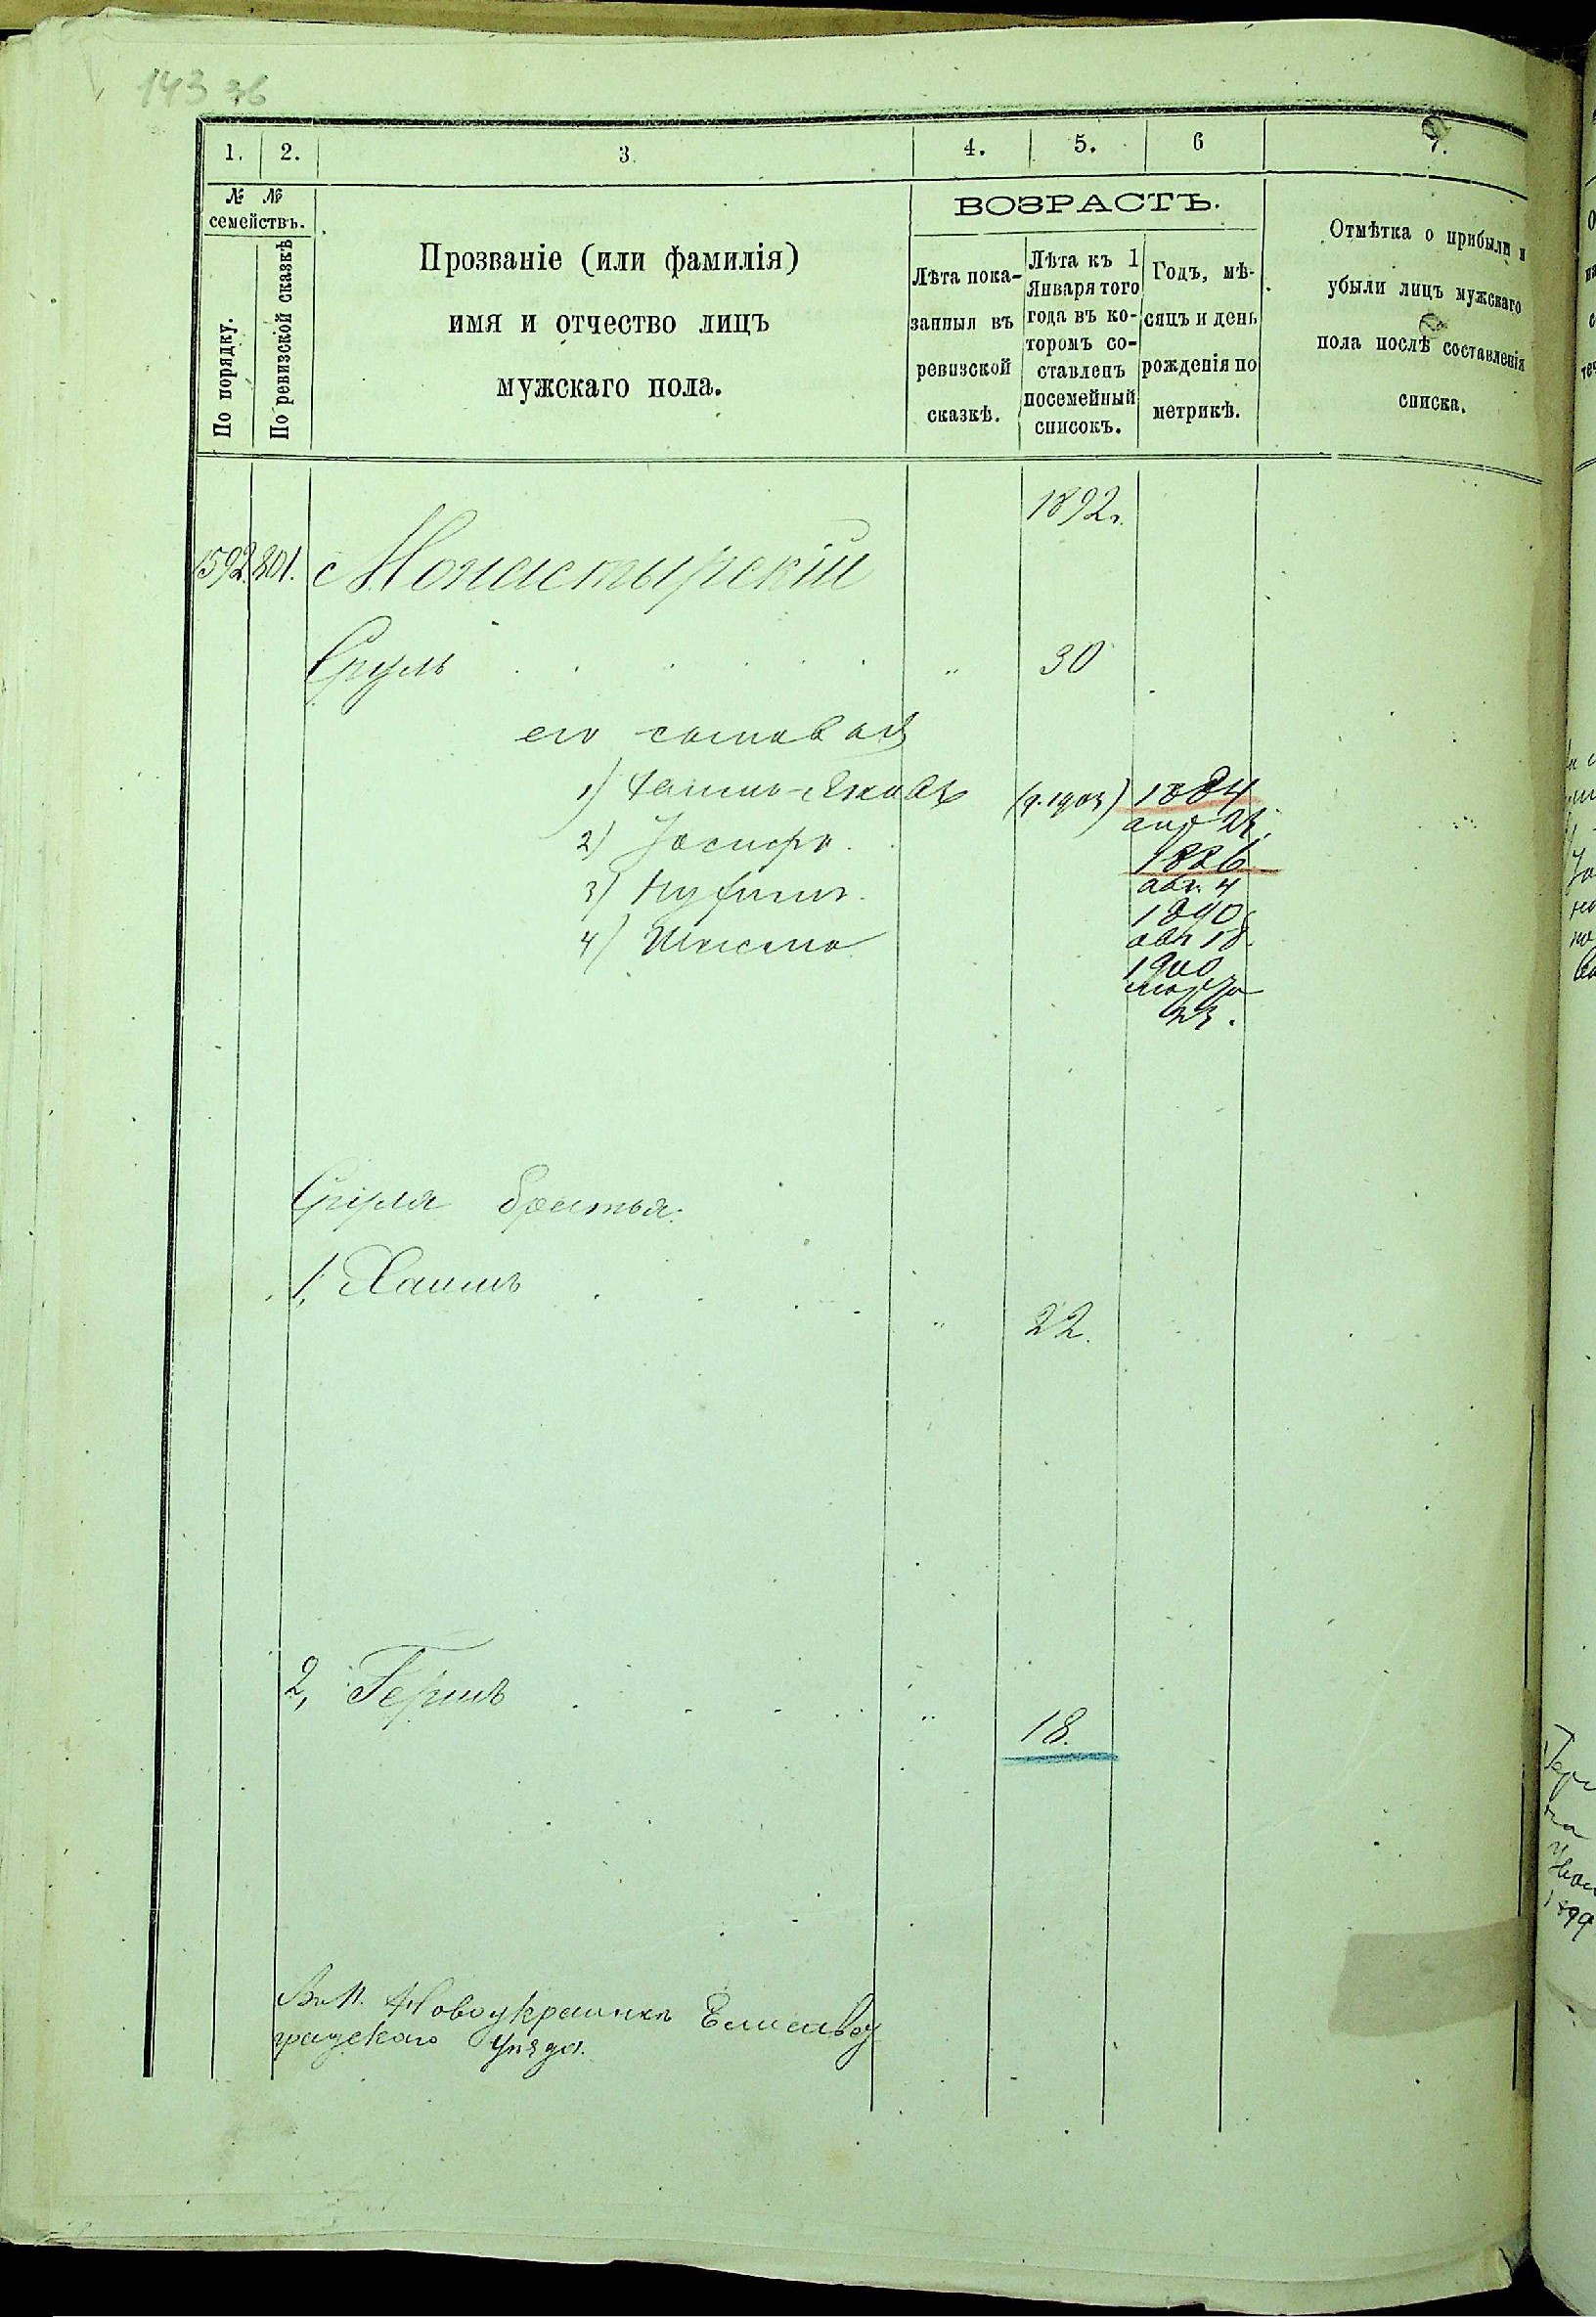 143 зв
1. 2. 3. 4. 5. 6 7.
№ № семействъ.
По порядку.
По ревизской сказкѣ
Прозваніе (или фамилія)
имя и отчество лицъ
мужскаго пола.
ВОЗРАСТЪ.
Лѣта пока-
занныя въ
ревизской
сказкѣ.
Лѣта къ 1
Января того
года въ ко-
торомъ со-
ставленъ
посемейный
списокъ.
Годъ, мѣ-
сяцъ и день
рожденія по
метрикѣ.
Отмѣтка о прибыли и
убыли лицъ мужскаго
пола послѣ составленія
списка.
1892 г.
1592. 801. Монастырскій
Сруль . . . . . " 30
его сыновья
1) Хаимъ-Яковъ (п. 1903) 1884
апр 23.
2) Іосифъ. 1886
авг. 4
3) 1890
авг 18.
4) 1900
марта
23.
Сруля братья:
1, Хаимъ . . . . " 22.
2, Гершъ . . . . " 18.
В. М. Новоукраинкѣ Елисавет
градскаго уѣзда.